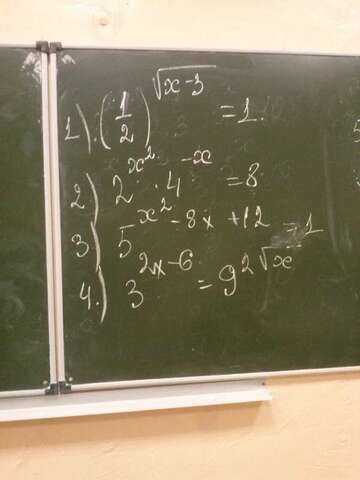 1) (1/2)^√(x-3) = 1.
2) 2^(x²) · 4^(-x) = 8
3) 5^(x² - 8x + 12) = 1
4.) 3^(2x-6) = 9^(2√x)